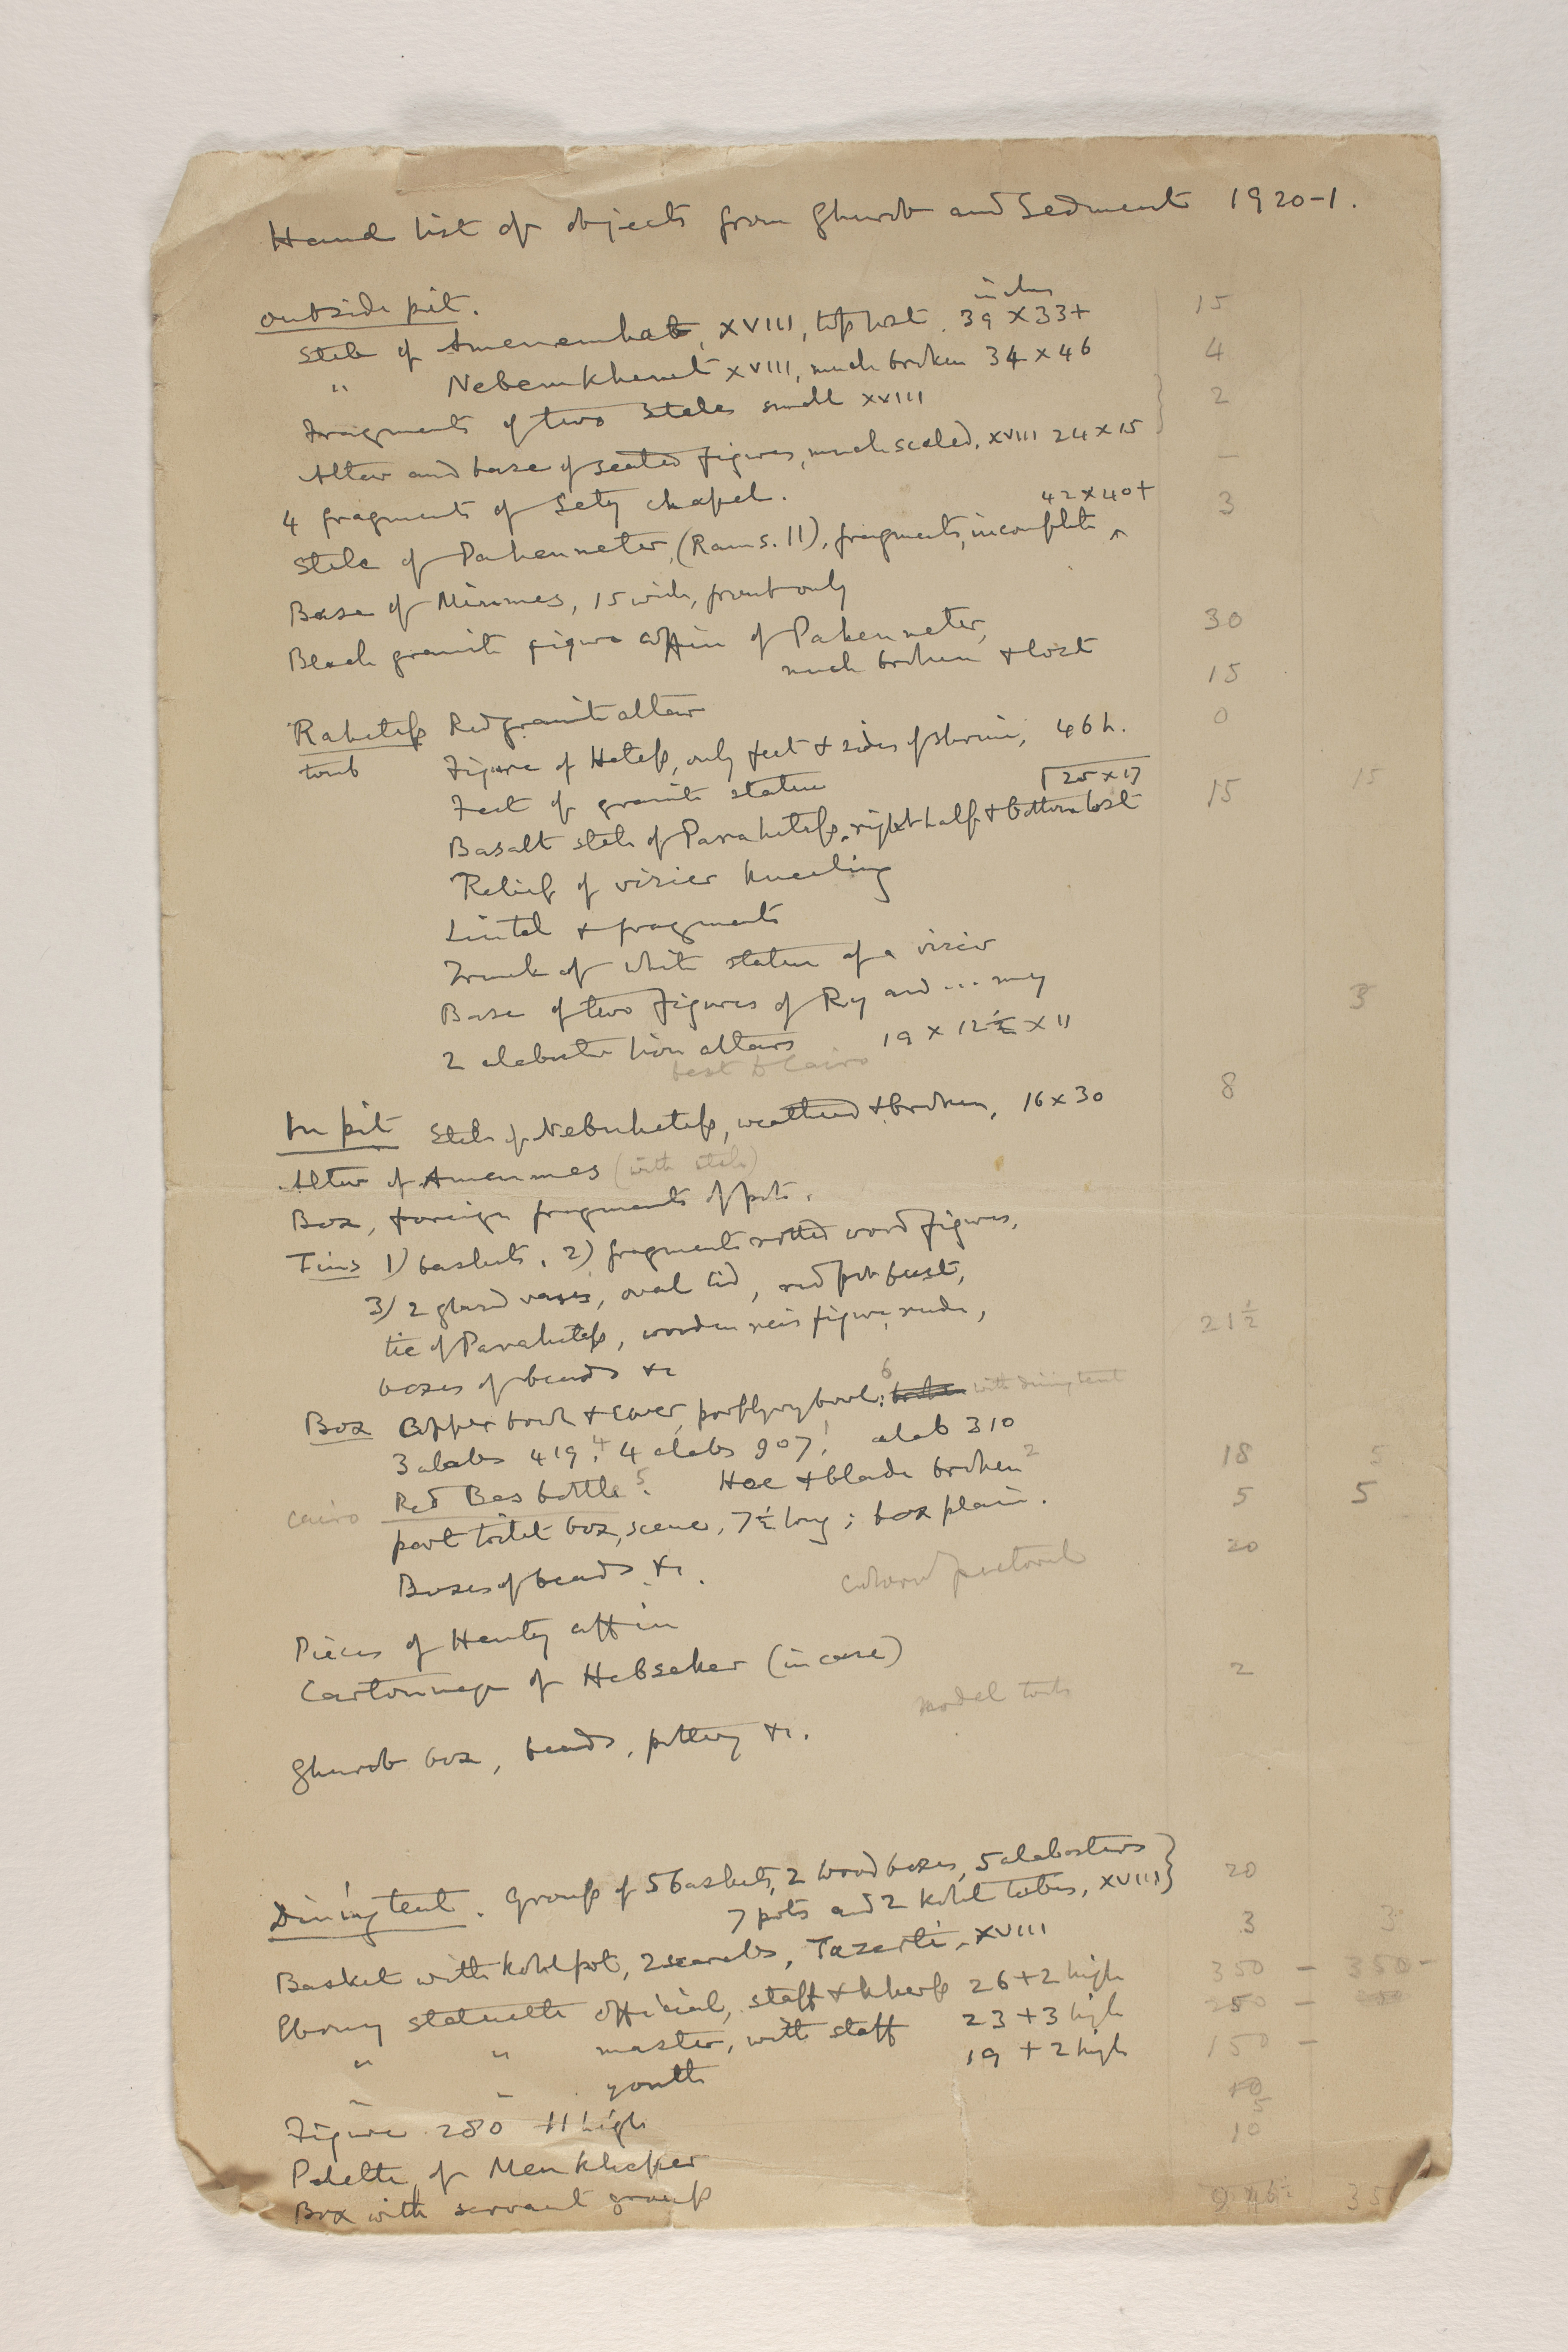 Hand list of objects from Ghurob and Sedment 1920-1.
outside pit.
inches
Stele of Amenemhat, XVIII, top lost. 39 x 33+ 15
" Nebemkhemt XVIII, much broken 34 x 46 4
Fragments of two steles small XVIII 2
Altar and base of seated figures, much scaled, XVIII 24 x 15
4 fragments of Sety chapel. —
42 x 40+
Stele of Pahenneter, (Rams. II), fragments, incomplete ^ 3
Base of Minmes, 15 wide, front only
Black granite figure coffin of Pahenneter, 30
much broken & lost
15
Rahetep Red granite altar
tomb Figure of Hetep, only feet & sides of shrine, 46 h. 0
Feet of granite statue 25 x 17
Basalt stele of Parahetep, right half & bottom lost 15 15
Relief of vizier kneeling
Lintel & fragments
Trunk of white statue of a vizier
Base of two figures of Ry and ... my
2 alabaster lion altars 19 x 12½ x 11 3
best to Cairo
In pit Stele of Nebuhetep, weathered & broken, 16 x 30 8
Altar of Amenmes (with stele)
Box, foreign fragments of pots.
Tins 1) baskets. 2) fragments rotted wood figures,
3) 2 glazed vases, oval lid, red pot bust,
tie of Parahetep, wooden reis figure, rude, 21½
boxes of beads &c
Box Copper bowl & ewer, porphyry bowl; 6 with dining tent
3 alabs 419. 4 4 alabs 907! alab 310
Cairo Red Bes bottle 5. Hoe & blade broken 2 18 5
part toilet box, scene, 7½ long; box plain. 5 5
Boxes of beads &c. 20
coloured pectoral
Pieces of Henty coffin
Cartonnage of Hebseker (in case) 2
model tools
Ghurob box, beads, pottery &c.
Dining tent. Group of 5 baskets, 2 wood boxes, 5 alabasters 20
7 pots and 2 kohl tubes, XVIII
Basket with kohl pot, 2 scarabs, Tazerti, XVIII 3 3
Ebony statuette official, staff & kherp 26 + 2 high 350 — 350 —
" " master, with staff 23 + 3 high 250 —
" " youth 19 + 2 high 150 —
Figure 280 11 high 10
5
Palette of Menkheper 10
Box with servant group